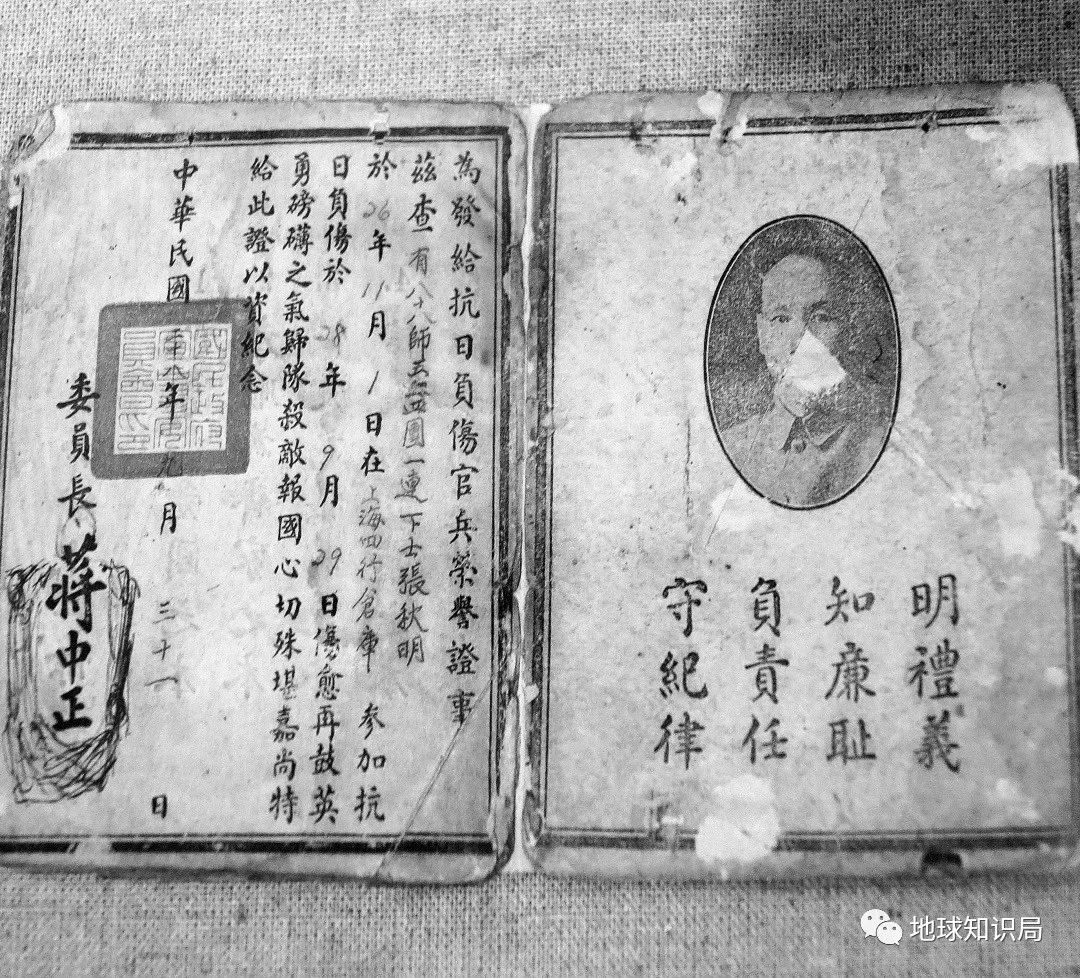 明禮義
知廉耻
負責任
守紀律
為發給抗日負傷官兵榮譽證事
茲查有八十八師五團一連下士張秋明
於26年11月1日在上海四行倉庫参加抗
日負傷於28年9月29日傷愈再鼓英
勇磅礴之氣歸隊殺敵報國心切殊堪嘉尚特
給此證以資紀念
中華民國年九月三十一日
國民政府
軍事委員
會印
委員長蔣中正
地球知识局